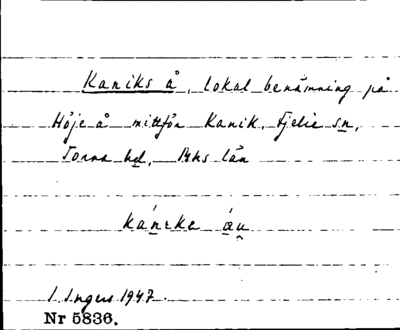 Kaniks å, lokal benämning på
Höje å mittför Kanik, Fjelie sn,
Torna hd, Mhs län
káneke áu
I. Ingers 1947.
Nr 5836.